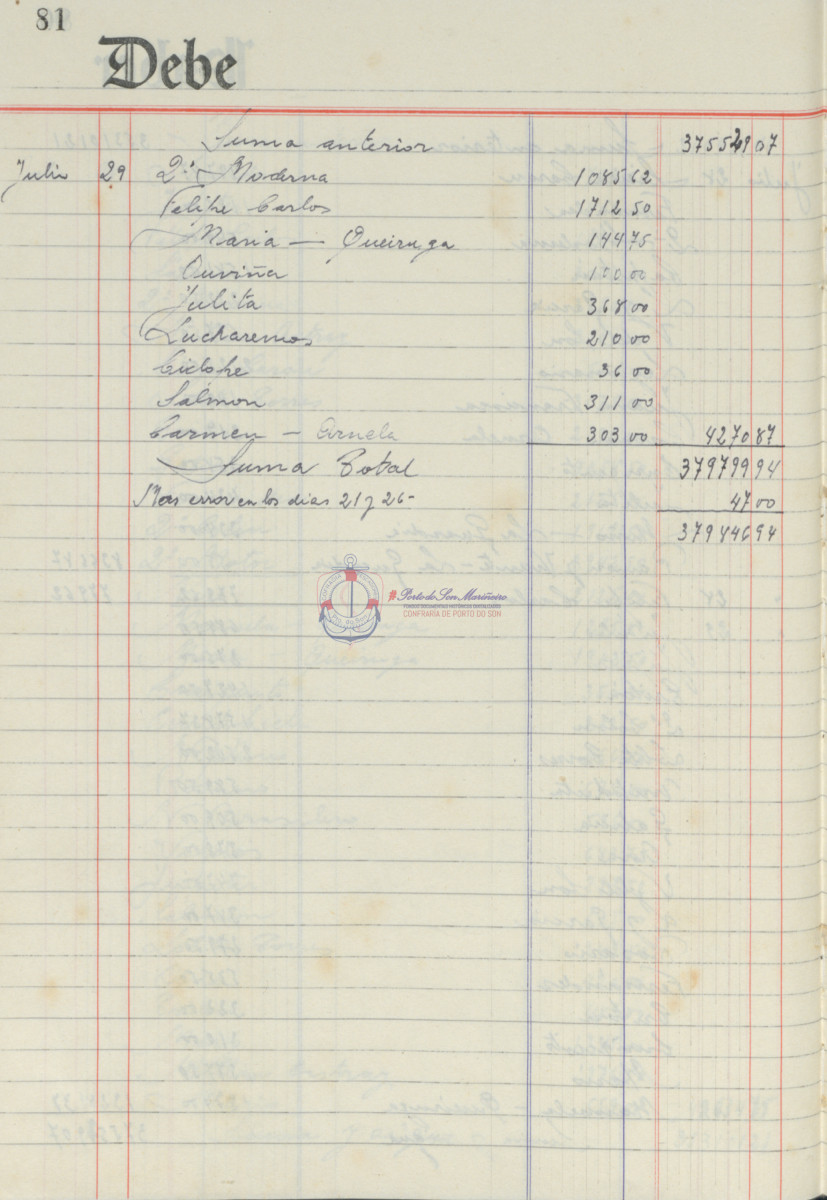 81
Debe
Suma anterior 375529 07
Julio 29 2ª Moderna 1085 62
Felipe Carlos 1712 50
Maria — Queiruga 144 75
Ouviña 100 00
Julita 368 00
Lucharemos 210 00
Ciclope 36 00
Salmon 311 00
Carmen — Arnela 303 00 4270 87
Suma Total 379799 94
Mas error en los dias 21 y 26 - 47 00
379846 94
Porto do Son Mariñeiro
FONDOS DOCUMENTAIS HISTÓRICOS DIXITALIZADOS
CONFRARIA DE PORTO DO SON